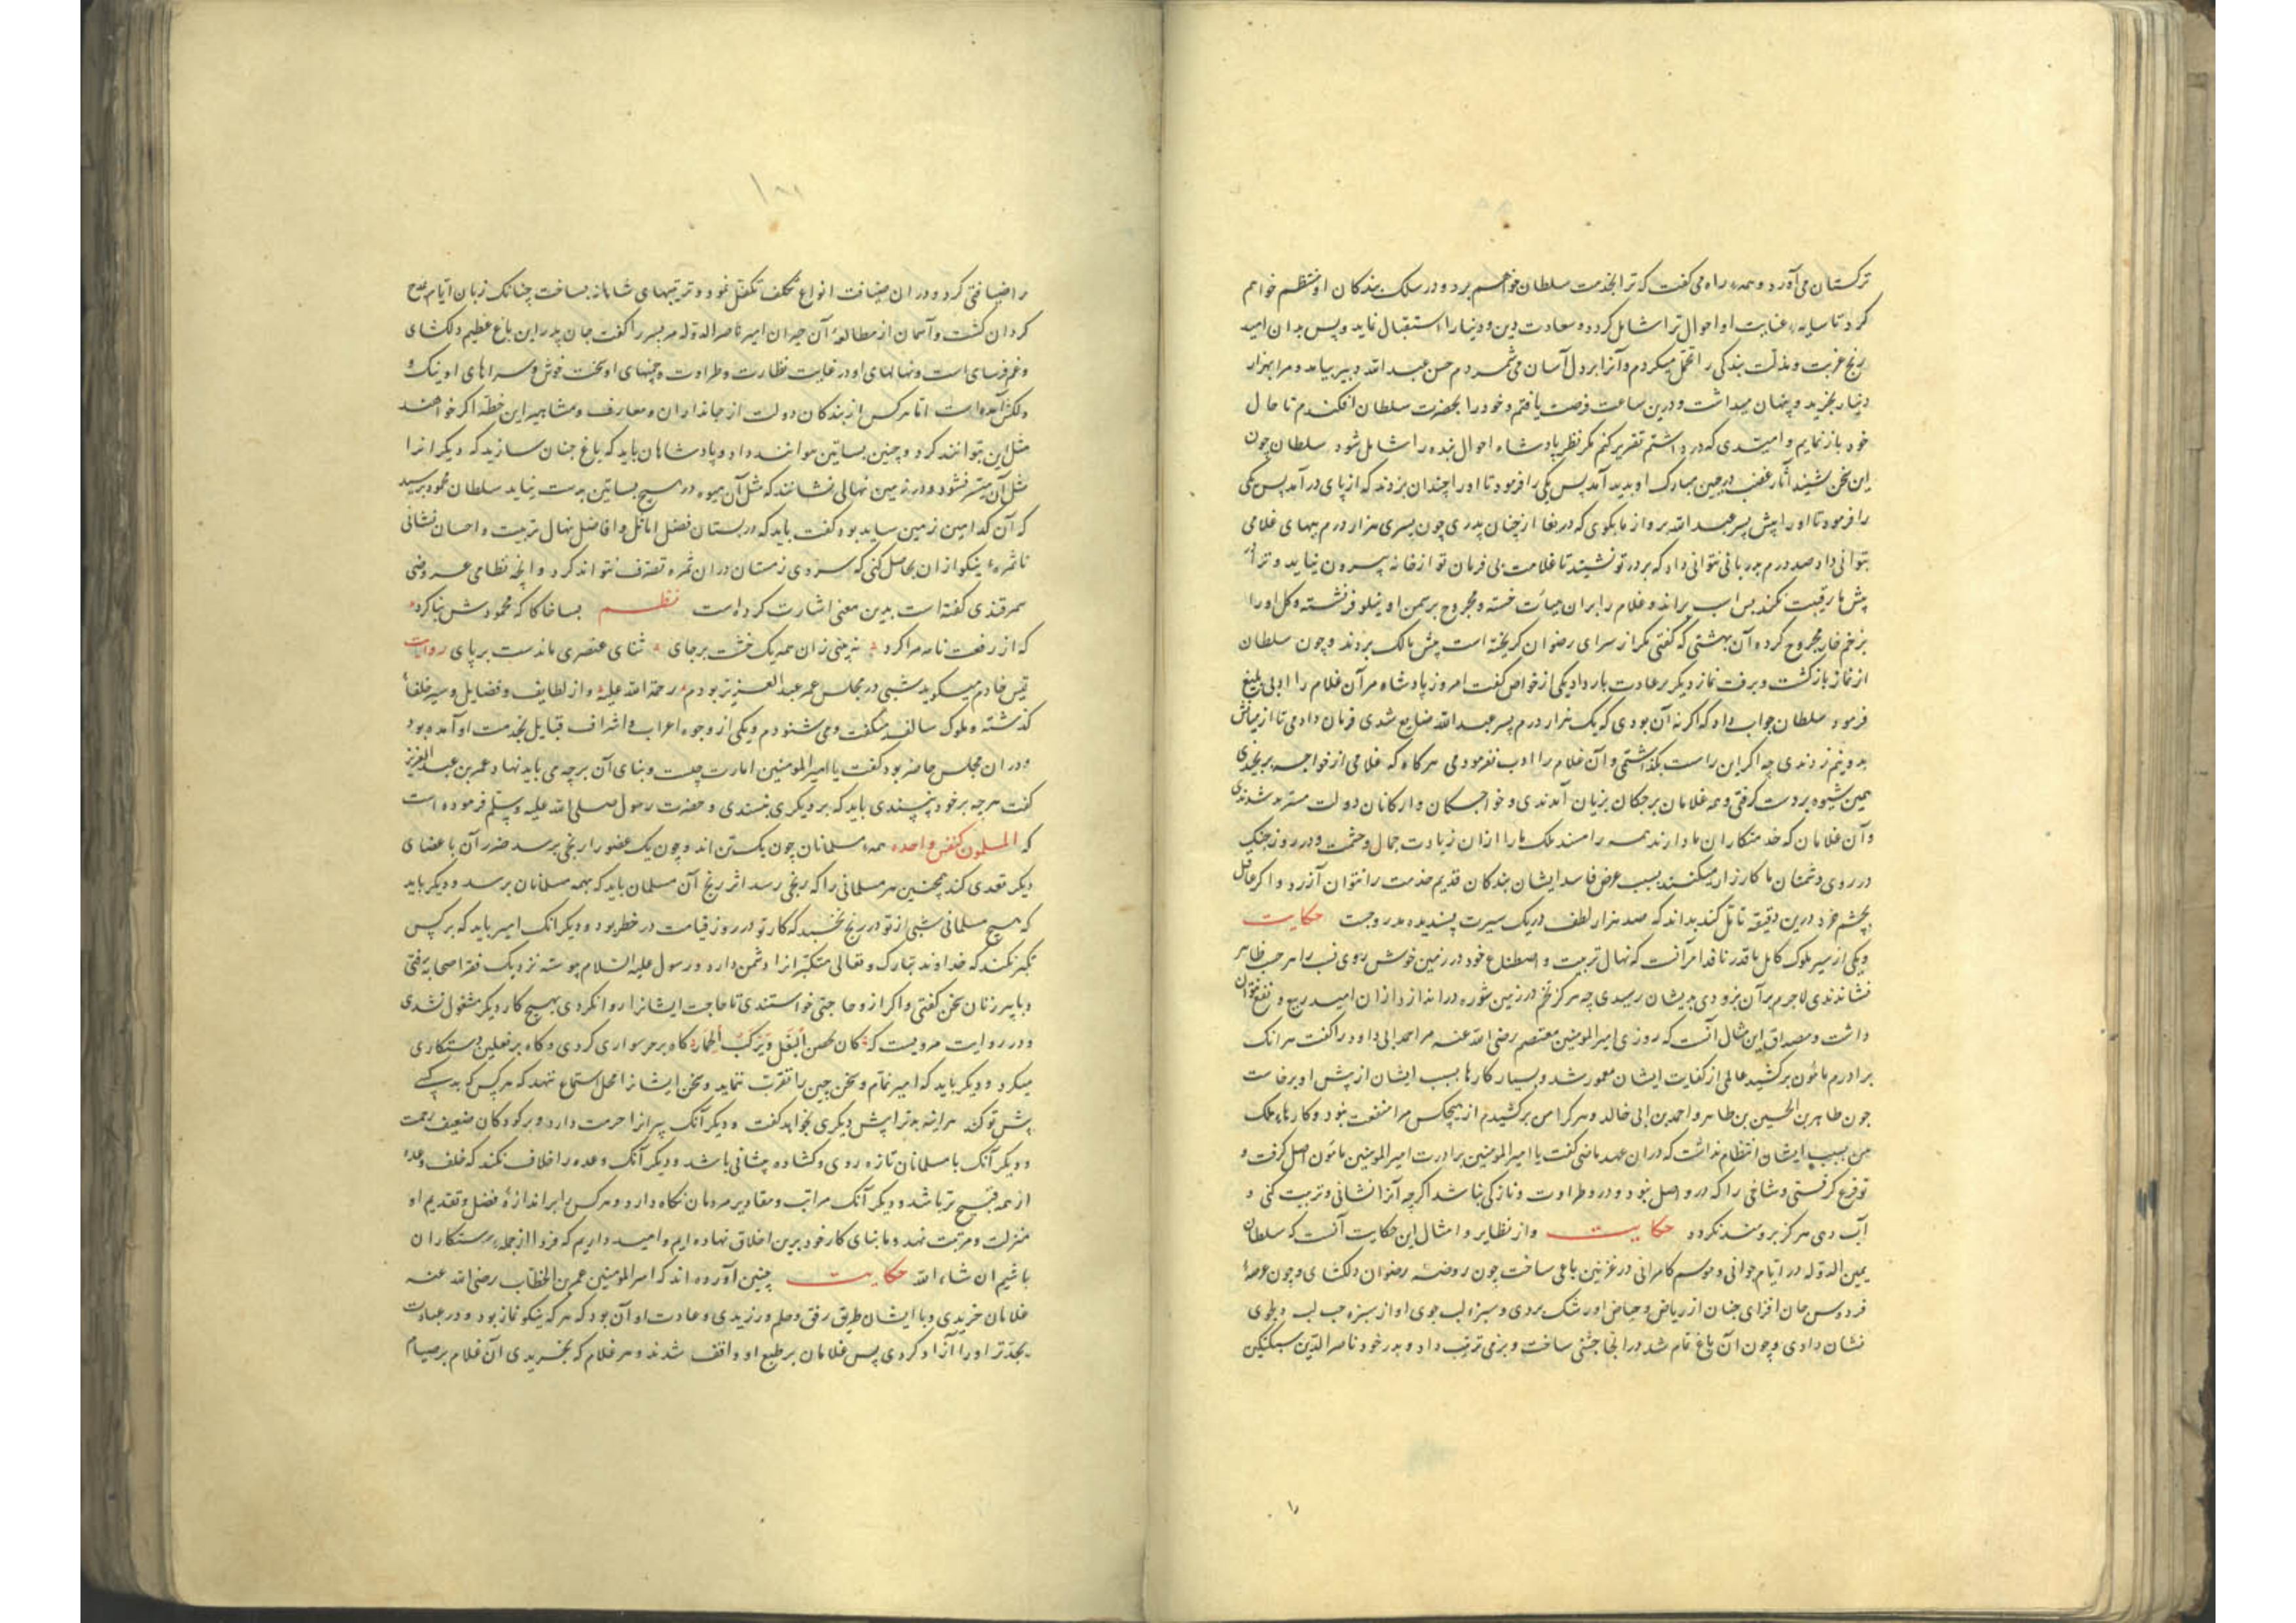 ترکستان می آورد و همه راه می گفت که ترا بخدمت سلطان خواهم برد و در سلک بندکان او منتظم خواهم
کرد تا سایه عنایت او احوال ترا شامل کردد و سعادت دین و دنیا را استقبال نماید و پس بدان امید
رنج غربت و مذلت بندکی را تحمل میکردم و آنرا بر دل آسان می شمردم حسن عبد الله دبیر بیامد و مرا بهزار
دینار بخرید و پنهان میداشت و درین ساعت فرصت یافتم و خود را بحضرت سلطان افکندم تا حال
خود باز نمایم و امیدی که در داشتم تقریر کنم مکر نظر پادشاه احوال بنده را شامل شود سلطان چون
این سخن بشنید آثار غضب در جبین مبارک او پدید آمد پس یکی را فرمود تا او را چندان بزدند که از پای در آمد پس یکی
را فرمود تا او را پیش پسر عبد الله برد و او را بکوی که دریغا از چنان پدری چون پسری هزار درم ببهای غلامی
بتوانی داد صد درم بدربانی نتوانی داد که بر در تو نشیند تا غلامت بی فرمان تو از خانه بیرون نیاید و ترا
پیش ما رقیبت نکند پس اسب براند و غلام را بران هیأت خسته و مجروح بر سمن او نیلوفر نشسته و کل او را
بزخم خار مجروح کرده آن بهشتی که کفتی مکر از سرای رضوان کریخته است پیش مالک بردند و چون سلطان
از نماز باز کشت و برفت نماز دیکر بر عادت بار داد یکی از خواص کفت امروز پادشاه مر آن غلام را ادبی بلیغ
فرمود سلطان جواب داد که اکر نه آن بودی که یک هزار درم پسر عبد الله ضایع شدی فرمان دادمی تا از میانش
بدو نیم زدندی چه اکر این راست بکذاشتمی و آن غلام را ادب نفرمودمی هر کاه که غلامی از خواجه برنجیدی
همین شیوه بر دست کرفتی و همه غلامان بر جکان بزیان آمدندی و خواجکان و ارکانان دولت مستزید شدندی
و آن غلامان که خدمتکاران ما دارند همه را مسند ملک ما را ازان زیادت جمال و حشمت و در روز جنک
در روی دشمنان ما کارزار میکنند بسبب عرض فاسد ایشان بندکان قدیم خدمت را نتوان آزرد و اکر عاقل
بچشم خرد درین دقیقه تأمل کند بداند که صد هزار لطف در یک سیرت پسندیده مدروجت حکایت
و یکی از سیر ملوک کامل با قدر نافذ امر آنست که نهال تربیت و اصطناع خود در زمین خوش روی نسب را هر حسب ظاهر
نشاندندی لا جرم بر آن بزودی بدیشان رسیدی چه هر کز تخم در زمین شوره در انداز ازان امید ریع و نفع نتوان
داشت و مصداق این مثال آنست که روزی امیر المومنین معتصم رضی الله عنه مر احمد ابی داود را کفت هر آنک
برادرم مأمون برکشید عالمی از کفایت ایشان معمور شد و بسیار کارها بسبب ایشان از پیش او برخاست
چون طاهر بن الحسین بن طاهر و احمد بن ابی خالد و هر کرا من برکشیدم از هیچکس مرا منفعت نبود و کارهاء ملک
من بسبب ایشان انتظام نداشت که دران عهد ماضی کفت یا امیر المومنین برادرت امیر المومنین مأمون اصل کرفت و
تو فرع کرفستی و شاخی را که در و اصل نبود و درو طراوت و تازکی نباشد اکرچه آنرا نشانی و تربیت کنی و
آب دهی هر کز برومند نکردد حکایت و از نظایر و امثال این حکایت آنست که سلطان
یمین الدوله در ایام جوانی و موسم کامرانی در غزنین باغی ساخت چون روضه رضوان دلکشای و چون عرصه
فردوس جان افزای جنان از ریاض و حیاض او رشک بردی و سبزه لب جوی او از سبزه حب لب دلجوی
نشان دادی و چون آن باغ تمام شد در انجا جشنی ساخت و بزمی ترتیب داد و پدر خود ناصر الدین سبکتکین
را ضیافتی کرد و دران ضیافت انواع تکلف تکفل نمود و ترتیبهای شاهانه بساخت چنانک زبان ایام مدح
کردان کشت و آسمان از مطالعه آن حیران امیر ناصر الدوله مر پسر را کفت جان پدر این باغ عظیم دلکشای
و غم فرسای است و نهالهای او در غایت نظارت و طراوت و چمنهای او سخت خوش و سراهای او نیک و
دلکش آمده است اما هر کس از بندکان دولت از جانداران و معارف و مشاهیر این خطه اکر خواهند
مثل این بتوانند کرد و چنین بساتین توانند داد و پادشاهان باید که باغ جنان سازند که دیکر انرا
مثل آن میسر نشود و در زمین نهالی نشانند که مثل آن میوه در هیچ بساتین بدست نیاید سلطان محمود پرسید
که آن کدامین زمین ساید بود کفت باید که در بستان فضل اماثل و افاضل نهال تربیت و احسان نشانی
تا ثمره نیکو ازان بحاصل کنی که سردی زمستان دران ثمره تصرف نتواند کرد و آنچه نظامی عروضی
سمرقندی کفته است بدین معنی اشارت کرده است نظم بسا خاکا که محمودش بنا کرد
که از رفعت نامه مرا کرد نه بینی زان همه یک خشت برجای ثنای عنصری ماندست برپای روایت
قیس خادم میکوید شبی در مجلس عمر عبد العزیز بودم رحمة الله علیه و از لطایف و فضایل و سیر خلفاء
کذشته و ملوک سالف میکفت و می شنودم و یکی از وجوه اعراب و اشراف قبایل بخدمت او آمده بود
و دران مجلس حاضر بود کفت یا امیر المومنین امارت چیست و بنای آن بر چه می باید نهاد عمر بن عبد العزیز
کفت هرچه بر خود نپسندی باید که بر دیکری نپسندی و حضرت رسول صلی الله علیه وسلم فرموده است
که المسلمون کنفس واحده همه مسلمانان چون یک تن اند و چون یک عضو را رنجی برسد ضرر آن با عضای
دیکر تعدی کند همچنین هر مسلمانی را که رنجی رسد اثر رنج آن مسلمان باید که بهمه مسلمانان برسد و دیکر باید
که هیچ مسلمانی شبی از تو در رنج نخسبد که کار تو در روز قیامت در خطر بود و دیکر انک امیر باید که بر کس
تکبر نکند که خداوند تبارک و تعالی متکبرانرا دشمن دارد و رسول علیه السلام پیوسته نزدیک فقرا صحابه رفتی
و با پیر زنان سخن کفتی و اکر از و حاجتی خواستندی تا حاجت ایشانرا روا نکردی بهیچ کار دیکر مشغول نشدی
و در روایت مرویست که کان البغل و یرکب الحمار کاه بر خر سواری کردی و کاه بر نعلین دستکاری
میکرد و دیکر باید که امیر نمّام و سخن چین را تقرب ننماید و سخن ایشانرا محل استماع ننهد که هر کس که بد کسی
پیش تو کند هر اینه بد ترا پیش دیکری بخواهد کفت و دیکر آنک پیرانرا حرمت دارد و بر کودکان ضعیف رحمت
و دیکر آنک با مسلمانان تازه روی و کشاده پیشانی باشد و دیکر آنک وعده را خلاف نکند که خلف وعده
از همه قبیح تر باشد و دیکر آنک مراتب و مقادیر مردمان نکاه دارد و هر کس را بر اندازه فضل و تقدیم او
منزلت و مرتبت نهد و ما بنای کار خود برین اخلاق نهاده ایم و امید داریم که فردا از جمله رستکاران
باشیم ان شاء الله حکایت چنین آورده اند که امیر المومنین عمر بن الخطاب رضی الله عنه
غلامان خریدی و با ایشان طریق رفق و حلم ورزیدی و عادت او آن بود که هر که نیکو نماز بود و در عبادت
بجدتر او را آزاد کردی پس غلامان بر طبع او واقف شدند و هر غلام که بخریدی آن غلام بر صیام